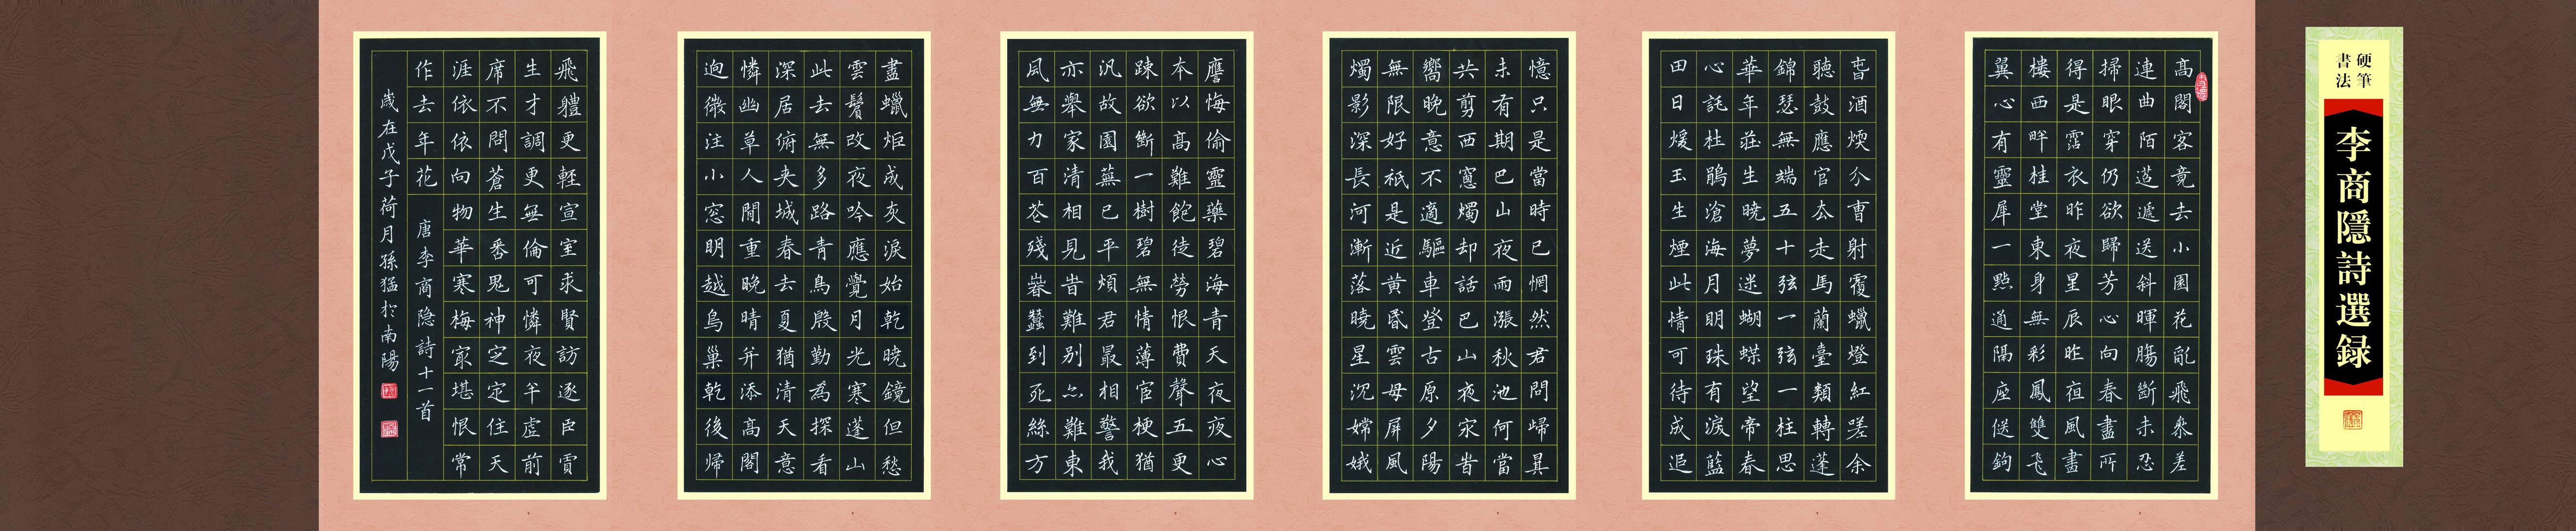 硬筆
書法
李商隱詩選録
高閣客竟去小園花亂飛參差
連曲陌迢遞送斜暉腸斷未忍
掃眼穿仍欲歸芳心向春盡所
得是霑衣昨夜星辰昨夜風畫
樓西畔桂堂東身無彩鳳雙飛
翼心有靈犀一點通隔座送鉤
旾酒煖分曹射覆蠟燈紅嗟余
聽鼓應官去走馬蘭臺類轉蓬
錦瑟無端五十弦一弦一柱思
華年莊生曉夢迷蝴蝶望帝春
心託杜鵑滄海月明珠有淚藍
田日煖玉生煙此情可待成追
憶只是當時已惘然君問歸朞
未有期巴山夜雨漲秋池何當
共剪西窻燭却話巴山夜雨旹
嚮晚意不適驅車登古原夕陽
無限好祇是近黄昏雲母屏風
燭影深長河漸落曉星沉嫦娥
應悔偷靈藥碧海青天夜夜心
本以高難飽徒勞恨費聲五更
踈欲斷一樹碧無情薄宦梗猶
汎故園蕪已平煩君最相警我
亦舉家清相見旹難別亦難東
風無力百花殘春蠶到死絲方
盡蠟炬成灰淚始乾曉鏡但愁
雲鬢改夜吟應覺月光寒蓬山
此去無多路青鳥殷勤為探看
深居俯夾城春去夏猶清天意
憐幽草人間重晚晴并添高閣
迥微注小窓明越鳥巢乾後歸
飛體更輕宣室求賢訪逐臣賈
生才調更無倫可憐夜半虛前
席不問蒼生問鬼神定定住天
涯依依向物華寒梅最堪恨常
作去年花 唐李商隐詩十一首
歲在戊子荷月孫猛於南陽